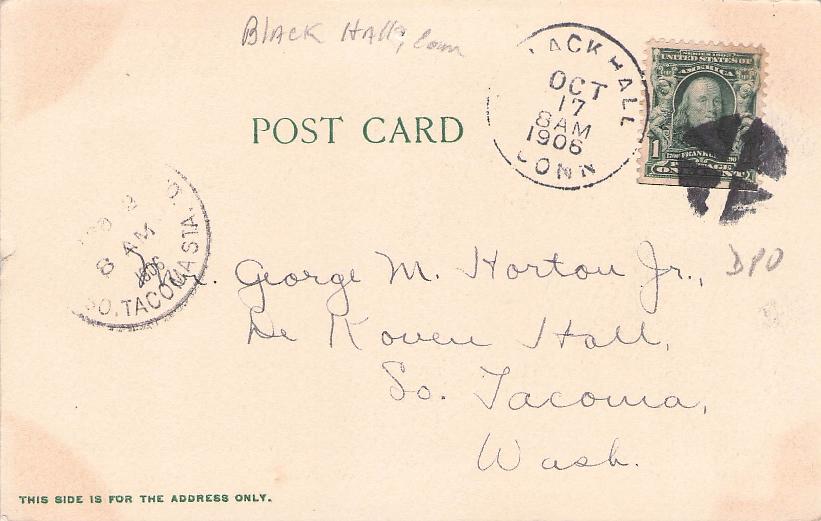 Black Hall, Conn
POST CARD
LACK HALL
OCT
17
8AM
1906
CONN
SERIES 1902
UNITED STATES OF
AMERICA
1
FRANKLIN
POSTAGE
ONE CENT
8 AM
1906
SO. TACOMA STA.
George M. Horton Jr.,
De Koven Hall,
So. Tacoma,
Wash.
DPO
THIS SIDE IS FOR THE ADDRESS ONLY.